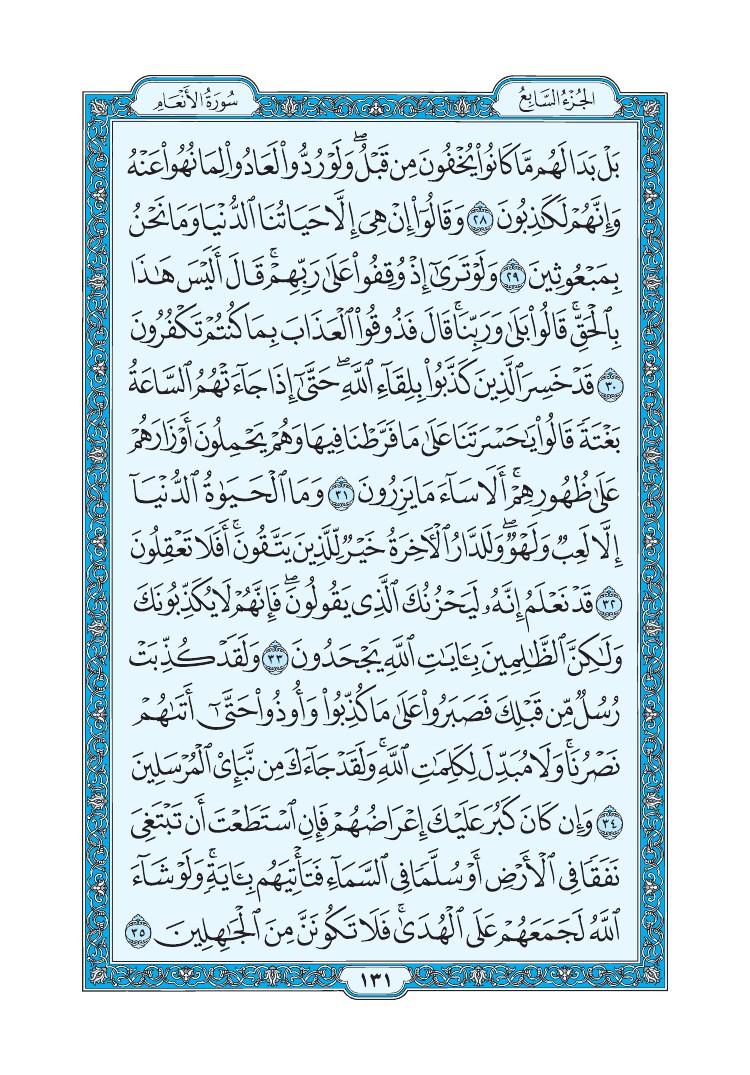 الجُزْءُ السَّابِعُ
سُورَةُ الأَنْعَامِ
بَلْ بَدَا لَهُم مَّا كَانُوا۟ يُخْفُونَ مِن قَبْلُ ۖ وَلَوْ رُدُّوا۟ لَعَادُوا۟ لِمَا نُهُوا۟ عَنْهُ
وَإِنَّهُمْ لَكَـٰذِبُونَ ٢٨ وَقَالُوٓا۟ إِنْ هِىَ إِلَّا حَيَاتُنَا ٱلدُّنْيَا وَمَا نَحْنُ
بِمَبْعُوثِينَ ٢٩ وَلَوْ تَرَىٰٓ إِذْ وُقِفُوا۟ عَلَىٰ رَبِّهِمْ ۚ قَالَ أَلَيْسَ هَـٰذَا
بِٱلْحَقِّ ۚ قَالُوا۟ بَلَىٰ وَرَبِّنَا ۚ قَالَ فَذُوقُوا۟ ٱلْعَذَابَ بِمَا كُنتُمْ تَكْفُرُونَ
٣٠ قَدْ خَسِرَ ٱلَّذِينَ كَذَّبُوا۟ بِلِقَآءِ ٱللَّهِ ۖ حَتَّىٰٓ إِذَا جَآءَتْهُمُ ٱلسَّاعَةُ
بَغْتَةً قَالُوا۟ يَـٰحَسْرَتَنَا عَلَىٰ مَا فَرَّطْنَا فِيهَا وَهُمْ يَحْمِلُونَ أَوْزَارَهُمْ
عَلَىٰ ظُهُورِهِمْ ۚ أَلَا سَآءَ مَا يَزِرُونَ ٣١ وَمَا ٱلْحَيَوٰةُ ٱلدُّنْيَآ
إِلَّا لَعِبٌ وَلَهْوٌ ۖ وَلَلدَّارُ ٱلْـَٔاخِرَةُ خَيْرٌ لِّلَّذِينَ يَتَّقُونَ ۚ أَفَلَا تَعْقِلُونَ
٣٢ قَدْ نَعْلَمُ إِنَّهُۥ لَيَحْزُنُكَ ٱلَّذِى يَقُولُونَ ۖ فَإِنَّهُمْ لَا يُكَذِّبُونَكَ
وَلَـٰكِنَّ ٱلظَّـٰلِمِينَ بِـَٔايَـٰتِ ٱللَّهِ يَجْحَدُونَ ٣٣ وَلَقَدْ كُذِّبَتْ
رُسُلٌ مِّن قَبْلِكَ فَصَبَرُوا۟ عَلَىٰ مَا كُذِّبُوا۟ وَأُوذُوا۟ حَتَّىٰٓ أَتَىٰهُمْ
نَصْرُنَا ۚ وَلَا مُبَدِّلَ لِكَلِمَـٰتِ ٱللَّهِ ۚ وَلَقَدْ جَآءَكَ مِن نَّبَإِى۟ ٱلْمُرْسَلِينَ
٣٤ وَإِن كَانَ كَبُرَ عَلَيْكَ إِعْرَاضُهُمْ فَإِنِ ٱسْتَطَعْتَ أَن تَبْتَغِىَ
نَفَقًا فِى ٱلْأَرْضِ أَوْ سُلَّمًا فِى ٱلسَّمَآءِ فَتَأْتِيَهُم بِـَٔايَةٍ ۚ وَلَوْ شَآءَ
ٱللَّهُ لَجَمَعَهُمْ عَلَى ٱلْهُدَىٰ ۚ فَلَا تَكُونَنَّ مِنَ ٱلْجَـٰهِلِينَ ٣٥
١٣١